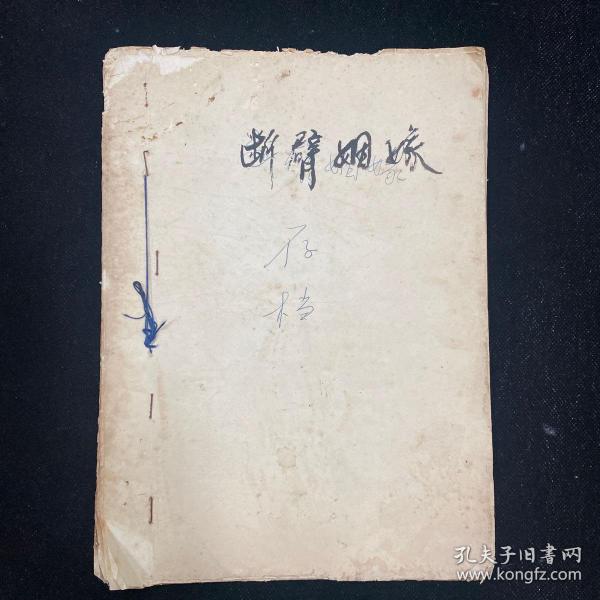 断臂姻缘
存
档
孔夫子旧書网
www.kongfz.com